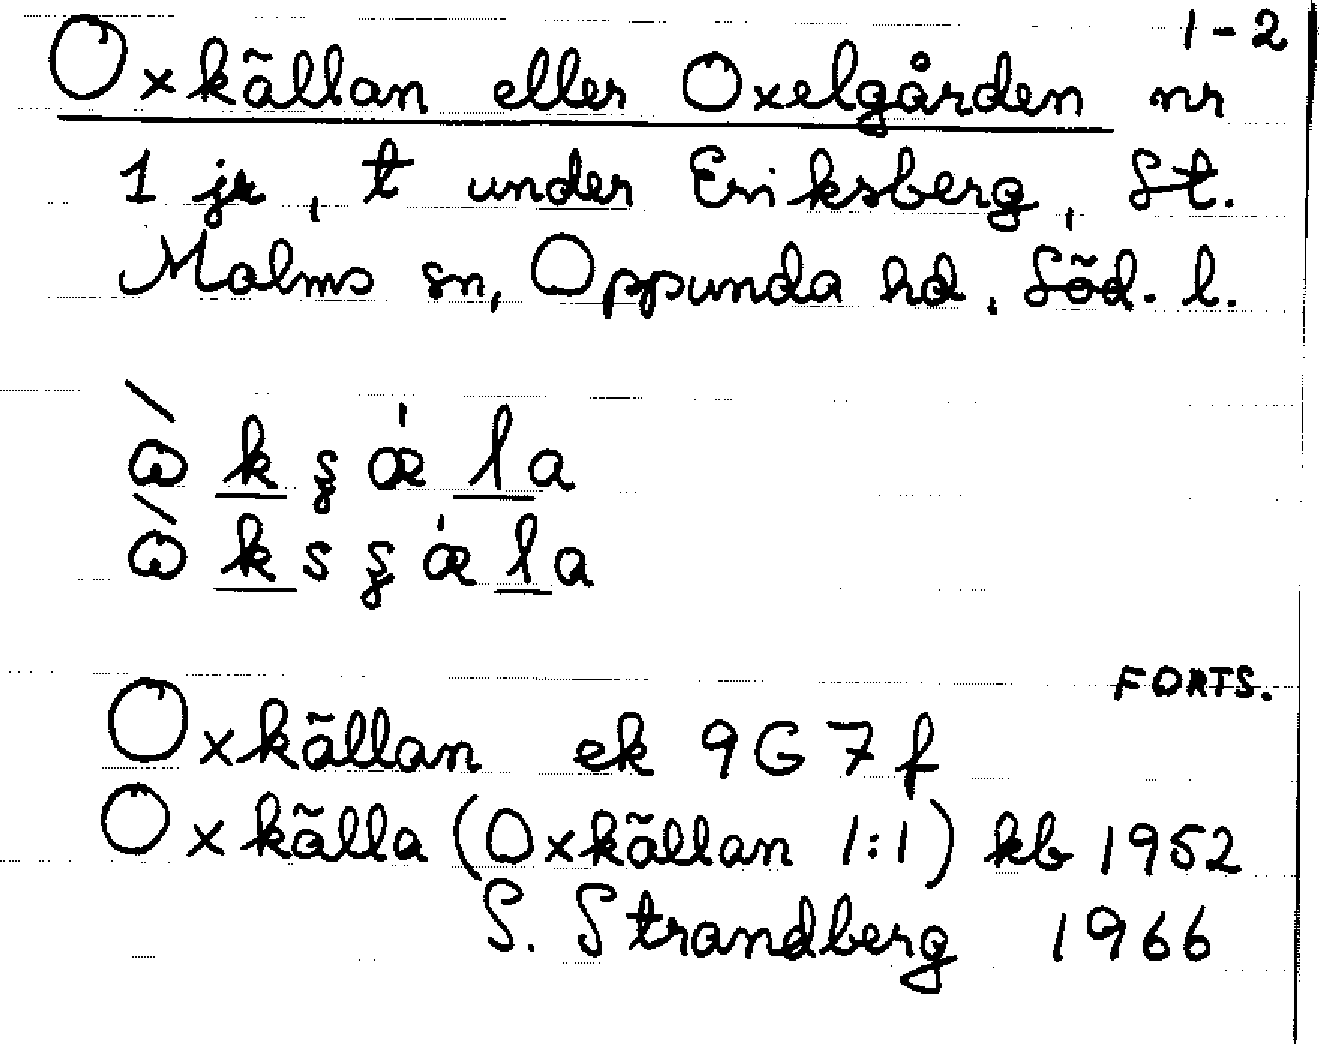 1-2
Oxkällan eller Oxelgården nr
1 jr, t under Eriksberg, St.
Malms sn, Oppunda hd, Söd. l.
FORTS.
Oxkällan ek 9G7f
Oxkälla (Oxkällan 1:1) kb 1952
S. Strandberg 1966